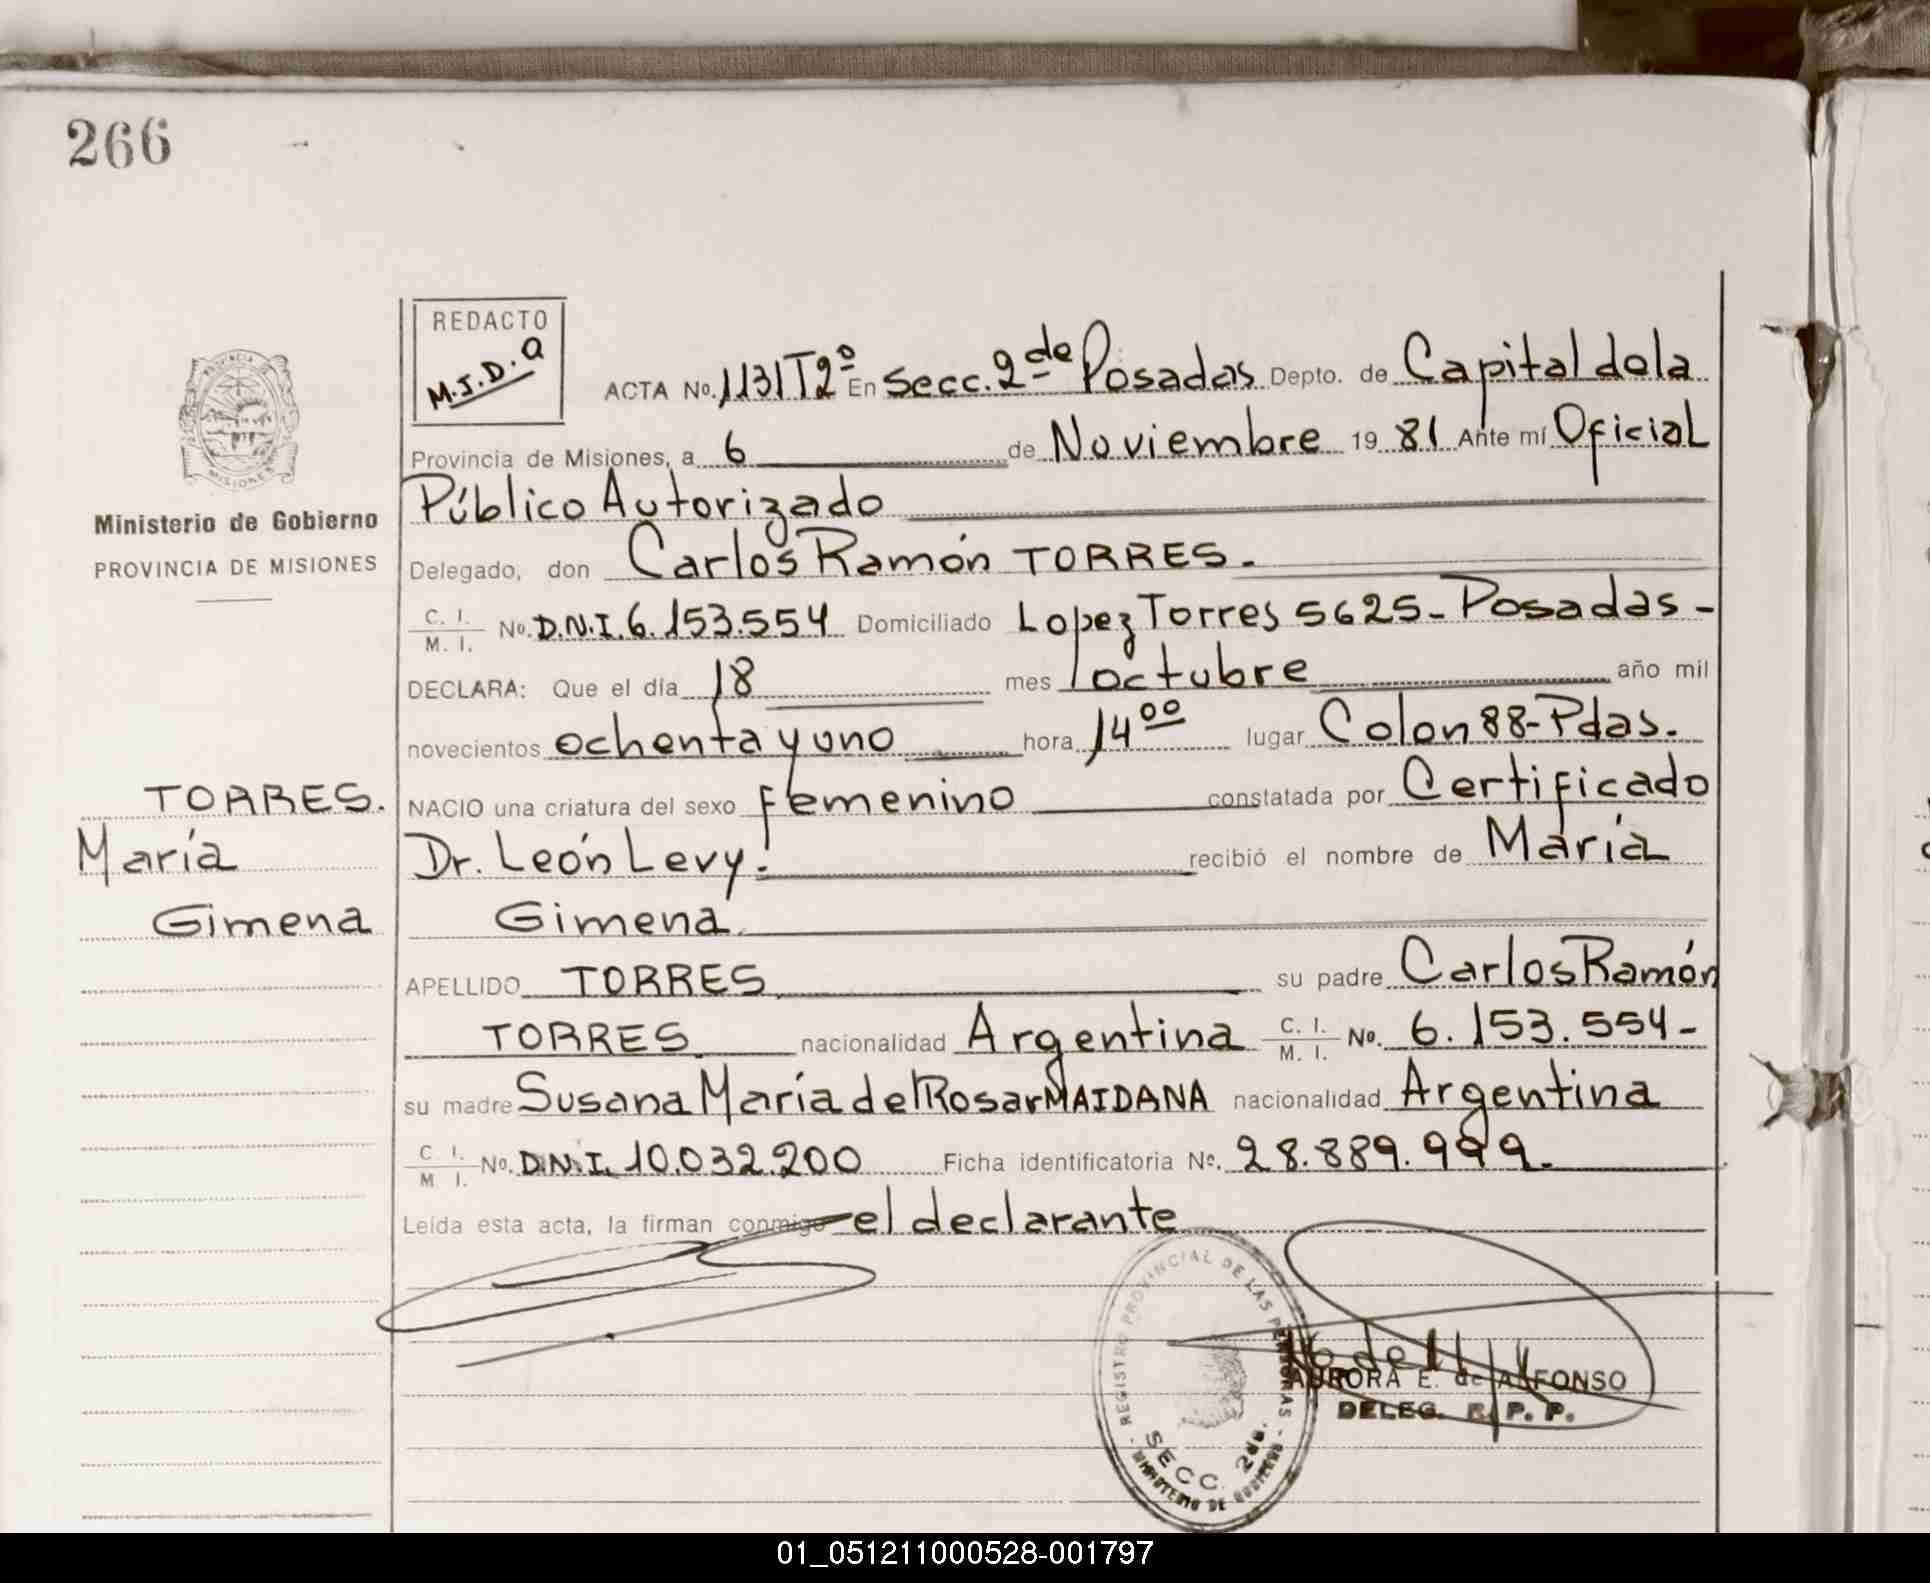 266
REDACTO
M.J.D.a
ACTA No. 1131 T2º En Secc. 2da de Posadas Depto. de Capital de la
Provincia de Misiones, a 6 de Noviembre 19 81 Ante mí Oficial
Público Autorizado
Delegado, don Carlos Ramón TORRES.
C. I. / M. I. No. D.N.I. 6.153.554 Domiciliado Lopez Torres 5625- Posadas-
DECLARA: Que el día 18 mes octubre año mil
novecientos ochenta y uno hora 14⁰⁰ lugar Colon 88-Pdas.
NACIO una criatura del sexo femenino constatada por Certificado
Dr. León Levy. recibió el nombre de María
Gimena.
APELLIDO TORRES su padre Carlos Ramón
TORRES nacionalidad Argentina C. I. / M. I. No. 6.153.554-
su madre Susana María del Rosar MAIDANA nacionalidad Argentina
C. I. / M. I. No. D.N.I. 10.032.200 Ficha identificatoria No. 28.889.999.
Leída esta acta, la firman conmigo el declarante
PROVINCIA
MISIONES
Ministerio de Gobierno
PROVINCIA DE MISIONES
TORRES.
María
Gimena
REGISTRO PROVINCIAL DE LAS PERSONAS
SECC. 2da.
MINISTERIO DE GOBIERNO
AURORA E. de ALFONSO
DELEG. R. P. P.
01_051211000528-001797